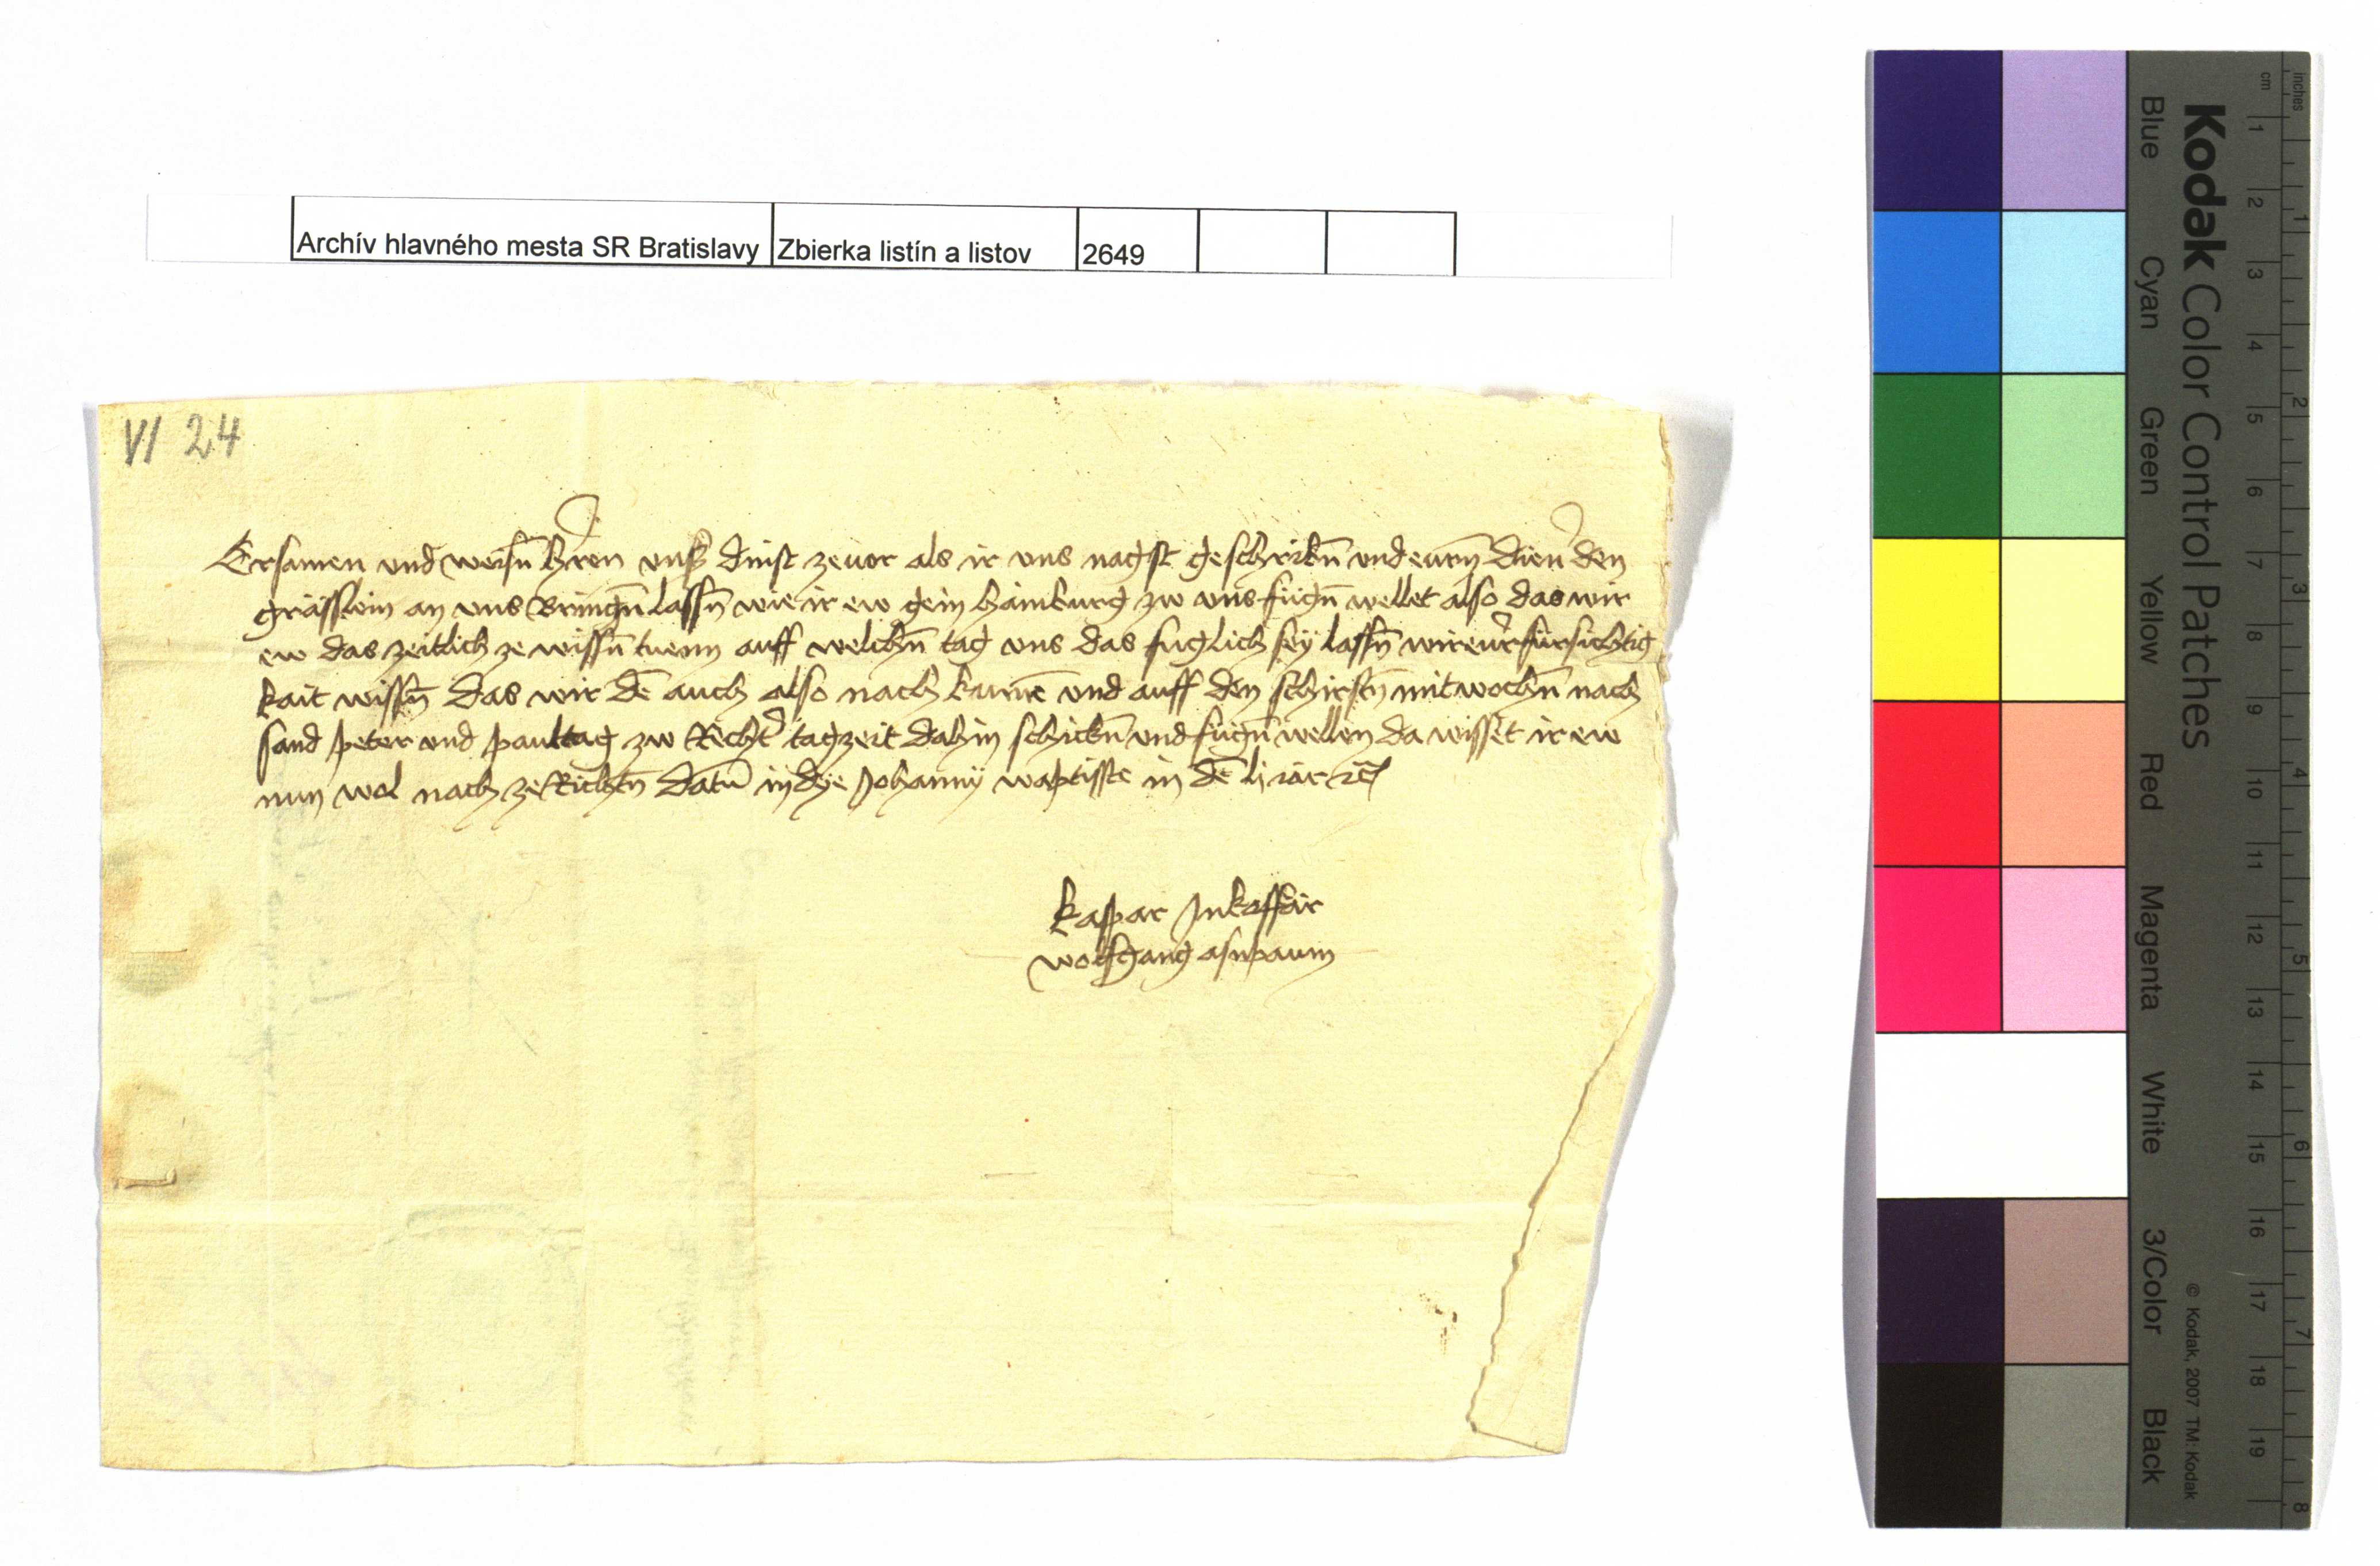 Archív hlavného mesta SR Bratislavy Zbierka listín a listov 2649
VI 24
Ersamen und weisn̄ hern unß dinst zeuor als ir uns nagst geschribn̄ und eurn̄ dien̄ den
grässlein an uns Bringn̄ lassn̄ wie ir ew gein hamburg zw uns fügn̄ wellet also das wir
ew das zeitlich ze wissn̄ tuenn auff welichn̄ tag uns das fuglich sey lassn̄ wir eur fürsichtig
kait wissn̄ das wir dē auch also nach kumē und auff den schirstn̄ mitwochn̄ nach
sand peter und paultag zw Recht̄ tagzeit dahin schickn̄ und fügn̄ wellen da wisset ir ew
nun wol nach ze Richtn̄ Datū in dye Johanny waptisste in dē lj iar
kaspar Inkoffär
wolfgang asnpaum
Kodak Color Control Patches
© Kodak, 2007 TM: Kodak
Blue Cyan Green Yellow Red Magenta White 3/Color Black
inches 1 2 3 4 5 6 7 8
cm 1 2 3 4 5 6 7 8 9 10 11 12 13 14 15 16 17 18 19